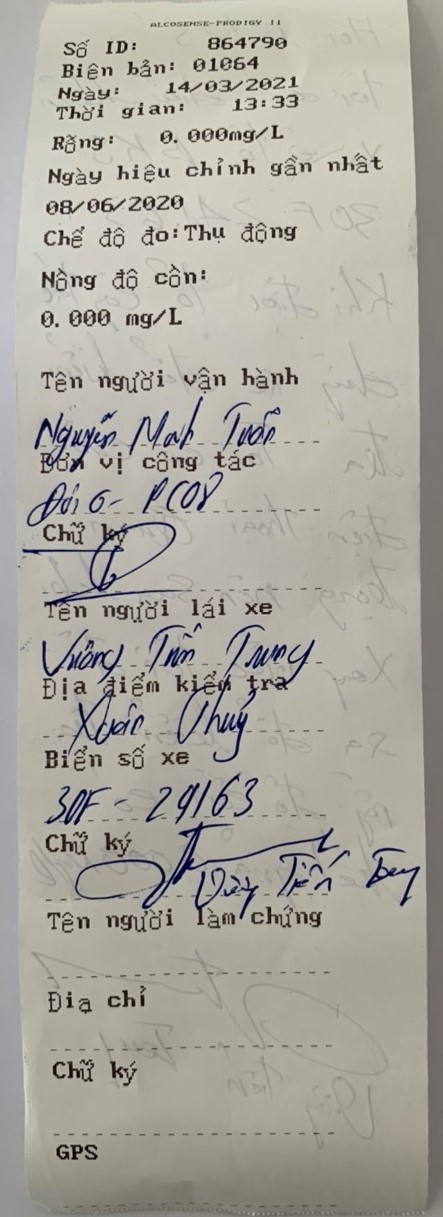 ALCOSENSE-PRODIGY II
Số ID: 864790
Biên bản: 01064
Ngày: 14/03/2021
Thời gian: 13:33
Rỗng: 0.000mg/L
Ngày hiệu chỉnh gần nhất
08/06/2020
Chế độ đo:Thụ động
Nồng độ cồn:
0.000 mg/L
Tên người vận hành
Nguyễn Minh Tuấn
Đơn vị công tác
Đội 6 - PC08
Chữ ký
Tên người lái xe
Vương Tiến Trung
Địa điểm kiểm tra
Xuân Thuỷ
Biển số xe
30F - 29163
Chữ ký
Tiến
Tên người làm chứng
Địa chỉ
Chữ ký
GPS